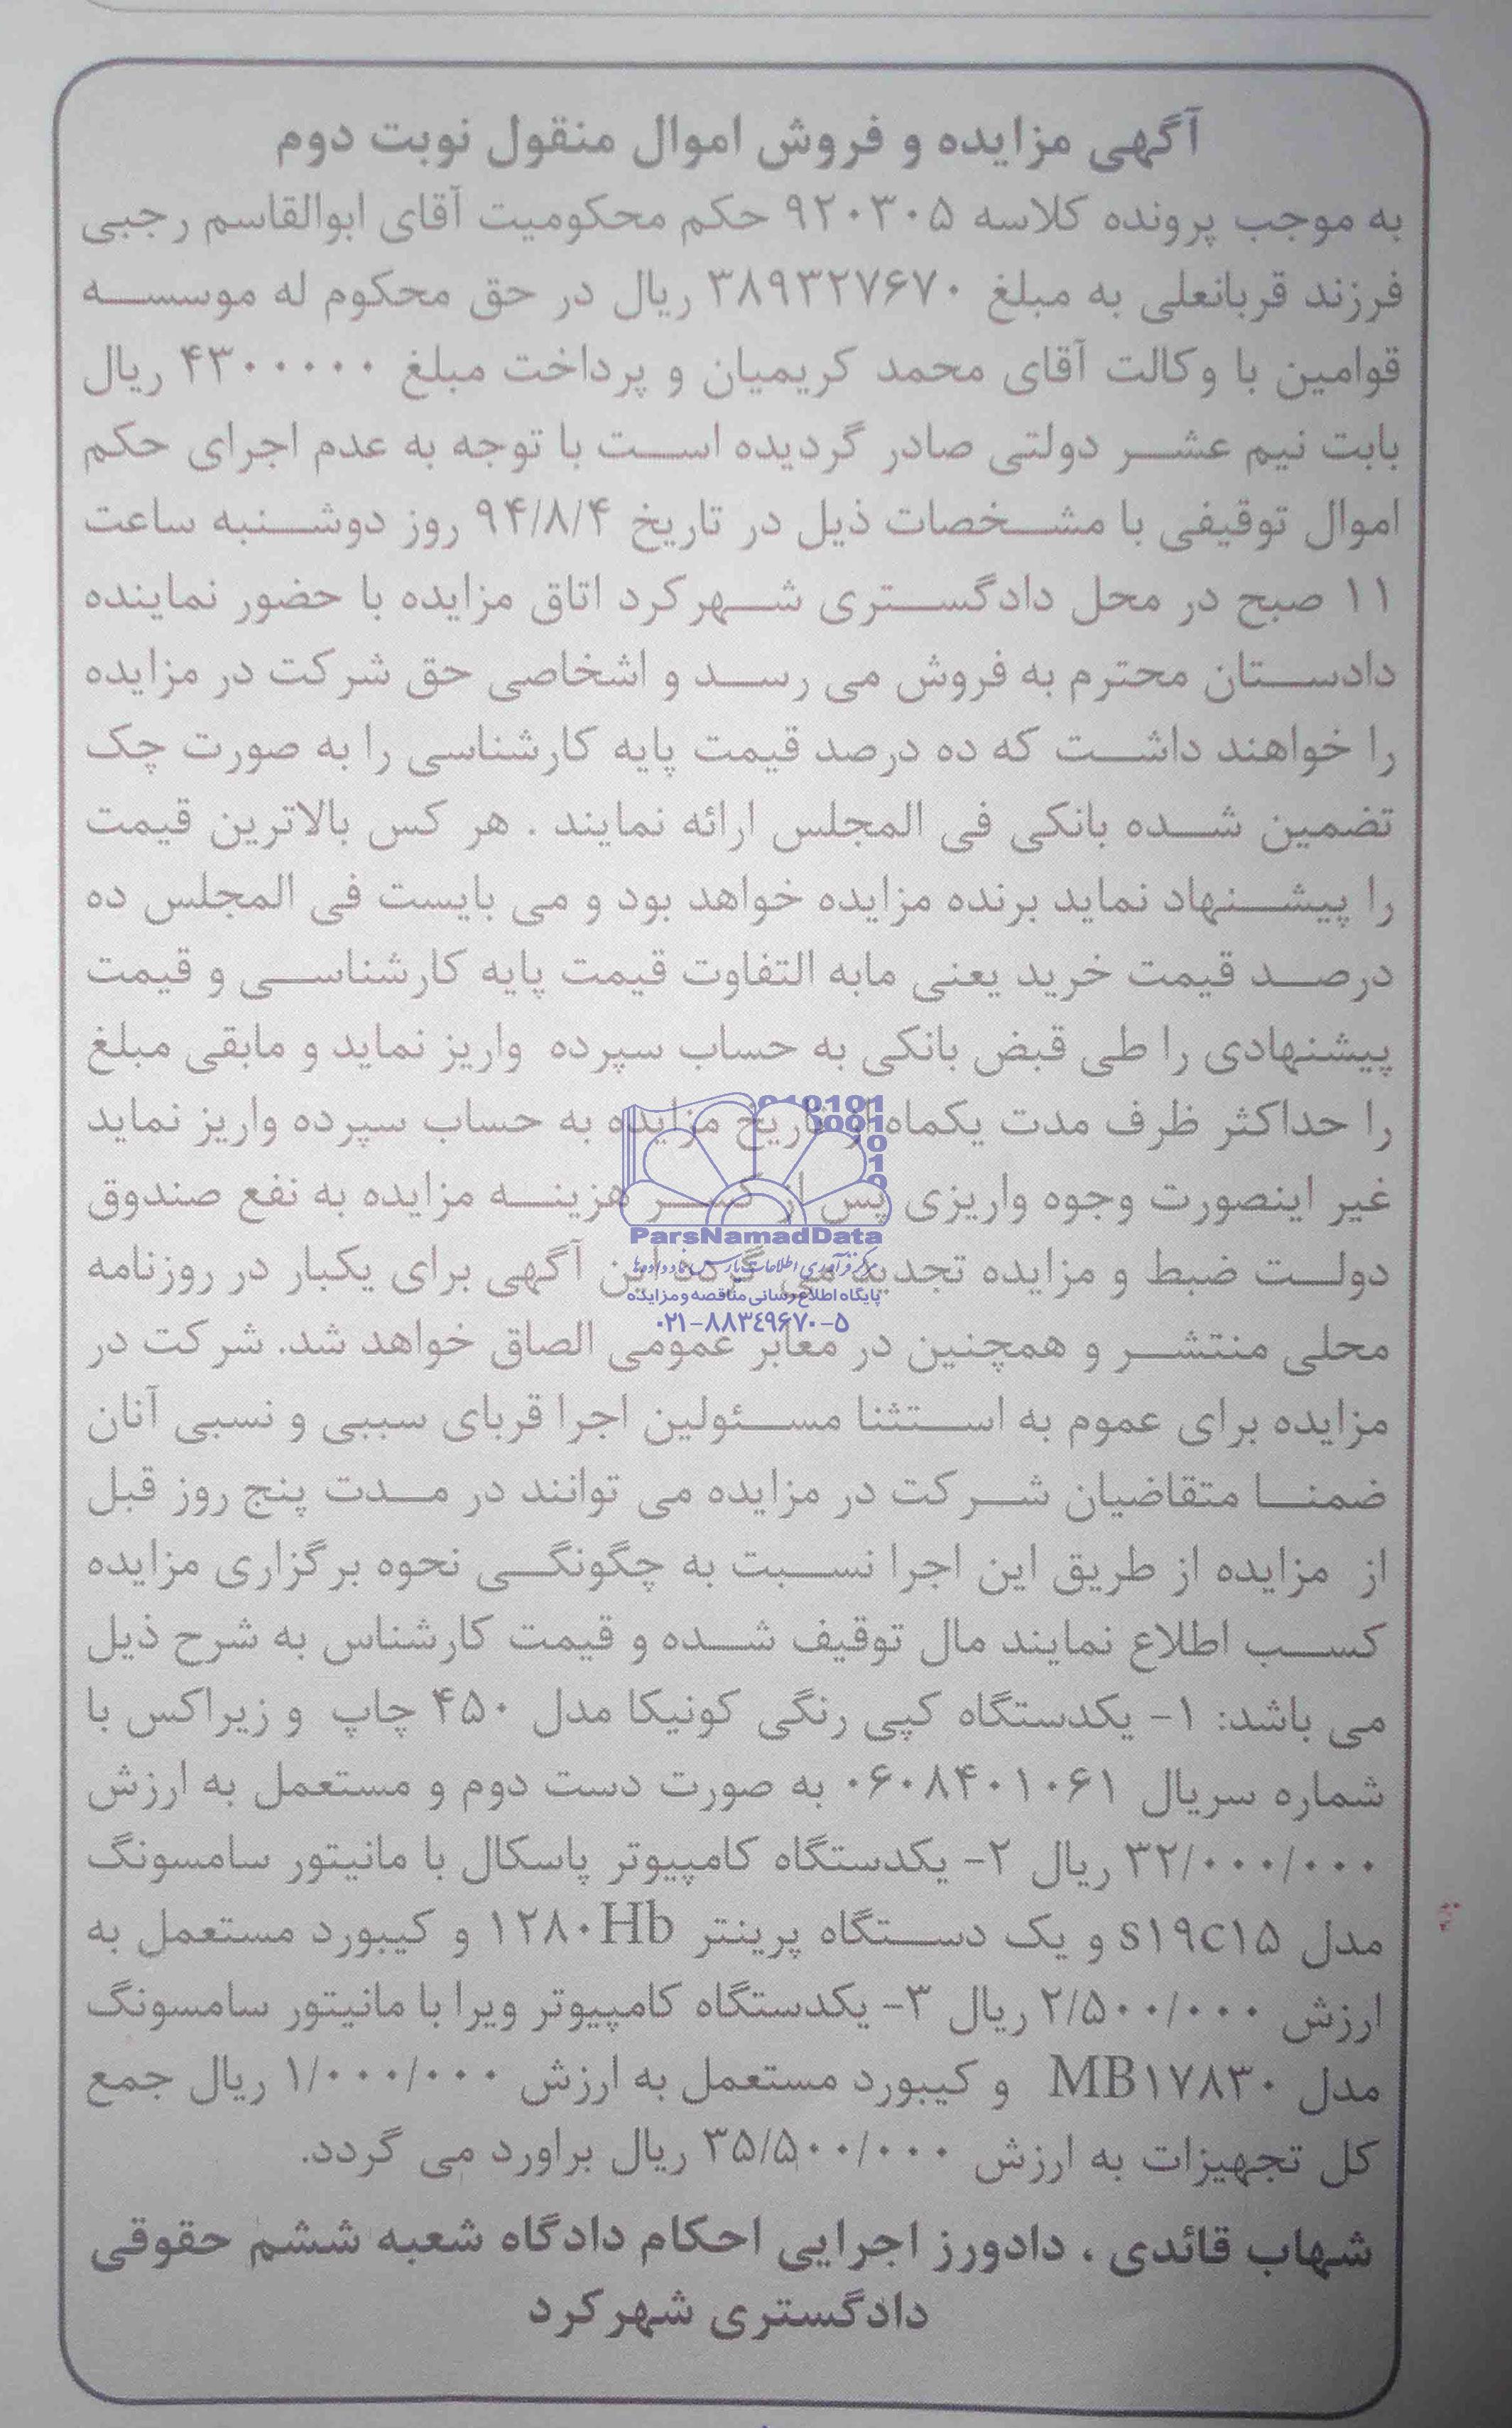 آگهی مزایده و فروش اموال منقول نوبت دوم
به موجب پرونده کلاسه ۹۲۰۳۰۵ حکم محکومیت آقای ابوالقاسم رجبی
فرزند قربانعلی به مبلغ ۳۸۹۳۲۷۶۷۰ ریال در حق محکوم له موسسه
قوامین با وکالت آقای محمد کریمیان و پرداخت مبلغ ۴۳۰۰۰۰۰ ریال
بابت نیم عشر دولتی صادر گردیده است با توجه به عدم اجرای حکم
اموال توقیفی با مشخصات ذیل در تاریخ ۹۴/۸/۴ روز دوشنبه ساعت
۱۱ صبح در محل دادگستری شهرکرد اتاق مزایده با حضور نماینده
دادستان محترم به فروش می رسد و اشخاصی حق شرکت در مزایده
را خواهند داشت که ده درصد قیمت پایه کارشناسی را به صورت چک
تضمین شده بانکی فی المجلس ارائه نمایند . هر کس بالاترین قیمت
را پیشنهاد نماید برنده مزایده خواهد بود و می بایست فی المجلس ده
درصد قیمت خرید یعنی مابه التفاوت قیمت پایه کارشناسی و قیمت
پیشنهادی را طی قبض بانکی به حساب سپرده واریز نماید و مابقی مبلغ
را حداکثر ظرف مدت یکماه از تاریخ مزایده به حساب سپرده واریز نماید
غیر اینصورت وجوه واریزی پس از کسر هزینه مزایده به نفع صندوق
دولت ضبط و مزایده تجدید می گردد این آگهی برای یکبار در روزنامه
محلی منتشر و همچنین در معابر عمومی الصاق خواهد شد. شرکت در
مزایده برای عموم به استثنا مسئولین اجرا قربای سببی و نسبی آنان
ضمنا متقاضیان شرکت در مزایده می توانند در مدت پنج روز قبل
از مزایده از طریق این اجرا نسبت به چگونگی نحوه برگزاری مزایده
کسب اطلاع نمایند مال توقیف شده و قیمت کارشناس به شرح ذیل
می باشد: ۱- یکدستگاه کپی رنگی کونیکا مدل ۴۵۰ چاپ و زیراکس با
شماره سریال ۰۶۰۸۴۰۱۰۶۱ به صورت دست دوم و مستعمل به ارزش
۳۲/۰۰۰/۰۰۰ ریال ۲- یکدستگاه کامپیوتر پاسکال با مانیتور سامسونگ
مدل s۱۹c۱۵ و یک دستگاه پرینتر ۱۲۸۰Hb و کیبورد مستعمل به
ارزش ۲/۵۰۰/۰۰۰ ریال ۳- یکدستگاه کامپیوتر ویرا با مانیتور سامسونگ
مدل MB۱۷۸۳۰ و کیبورد مستعمل به ارزش ۱/۰۰۰/۰۰۰ ریال جمع
کل تجهیزات به ارزش ۳۵/۵۰۰/۰۰۰ ریال براورد می گردد.
شهاب قائدی ، دادورز اجرایی احکام دادگاه شعبه ششم حقوقی
دادگستری شهرکرد
ParsNamadData
مرکز فرآوری اطلاعات پارس نماد داده‌ها
پایگاه اطلاع رسانی مناقصه و مزایده
۰۲۱-۸۸۳۴۹۶۷۰-۵